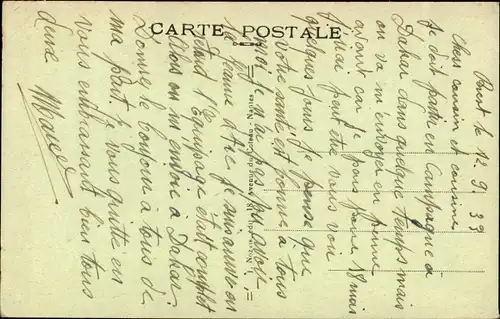 CARTE POSTALE
Brest le 12 9 39
Chers cousin et cousine
Je doit partir en Campagne a
Dakar dans quelque temps mais
on va m'envoyer en perme
avant car je pars pour 18 mois
J'irai peut être vous voir
quelques jours. Je pense que
votre santé est bonne a tous
moi je n'ai pas pu avoir
la Jeanne d'Arc je suis arrivé en
retard l'équipage était complet
Alors on m'envoie a Dakar.
Donnez le bonjour a tous de
ma part. Je vous quitte en
vous embrassant bien tous
deux
Marcel